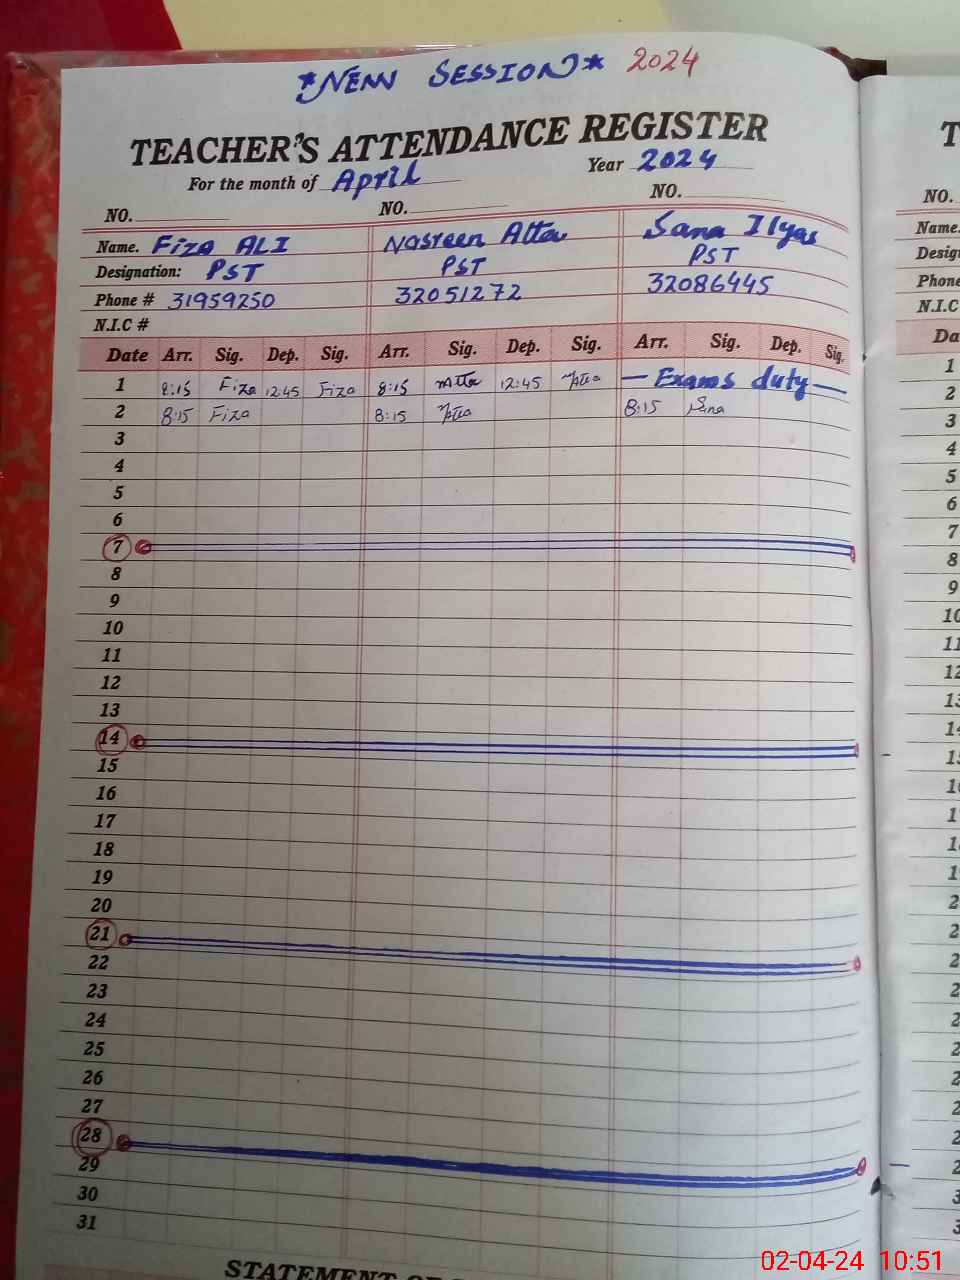 *NEW SESSION* 2024
TEACHER'S ATTENDANCE REGISTER
For the month of April Year 2024
NO. NO. NO.
Name. Fiza ALI Nasreen Atta Sana Ilyas
Designation: PST PST PST
Phone # 31959250 32051272 32086445
N.I.C #
Date Arr. Sig. Dep. Sig. Arr. Sig. Dep. Sig. Arr. Sig. Dep. Sig.
1 8:15 Fiza 12:45 Fiza 8:15 Atta 12:45 Atta — Exams duty —
2 8:15 Fiza 8:15 Atta 8:15 Sana
3
4
5
6
7
8
9
10
11
12
13
14
15
16
17
18
19
20
21
22
23
24
25
26
27
28
29
30
31
STATEMENT
NO.
Name.
Phone
N.I.C
1
2
3
4
5
6
7
8
9
02-04-24 10:51